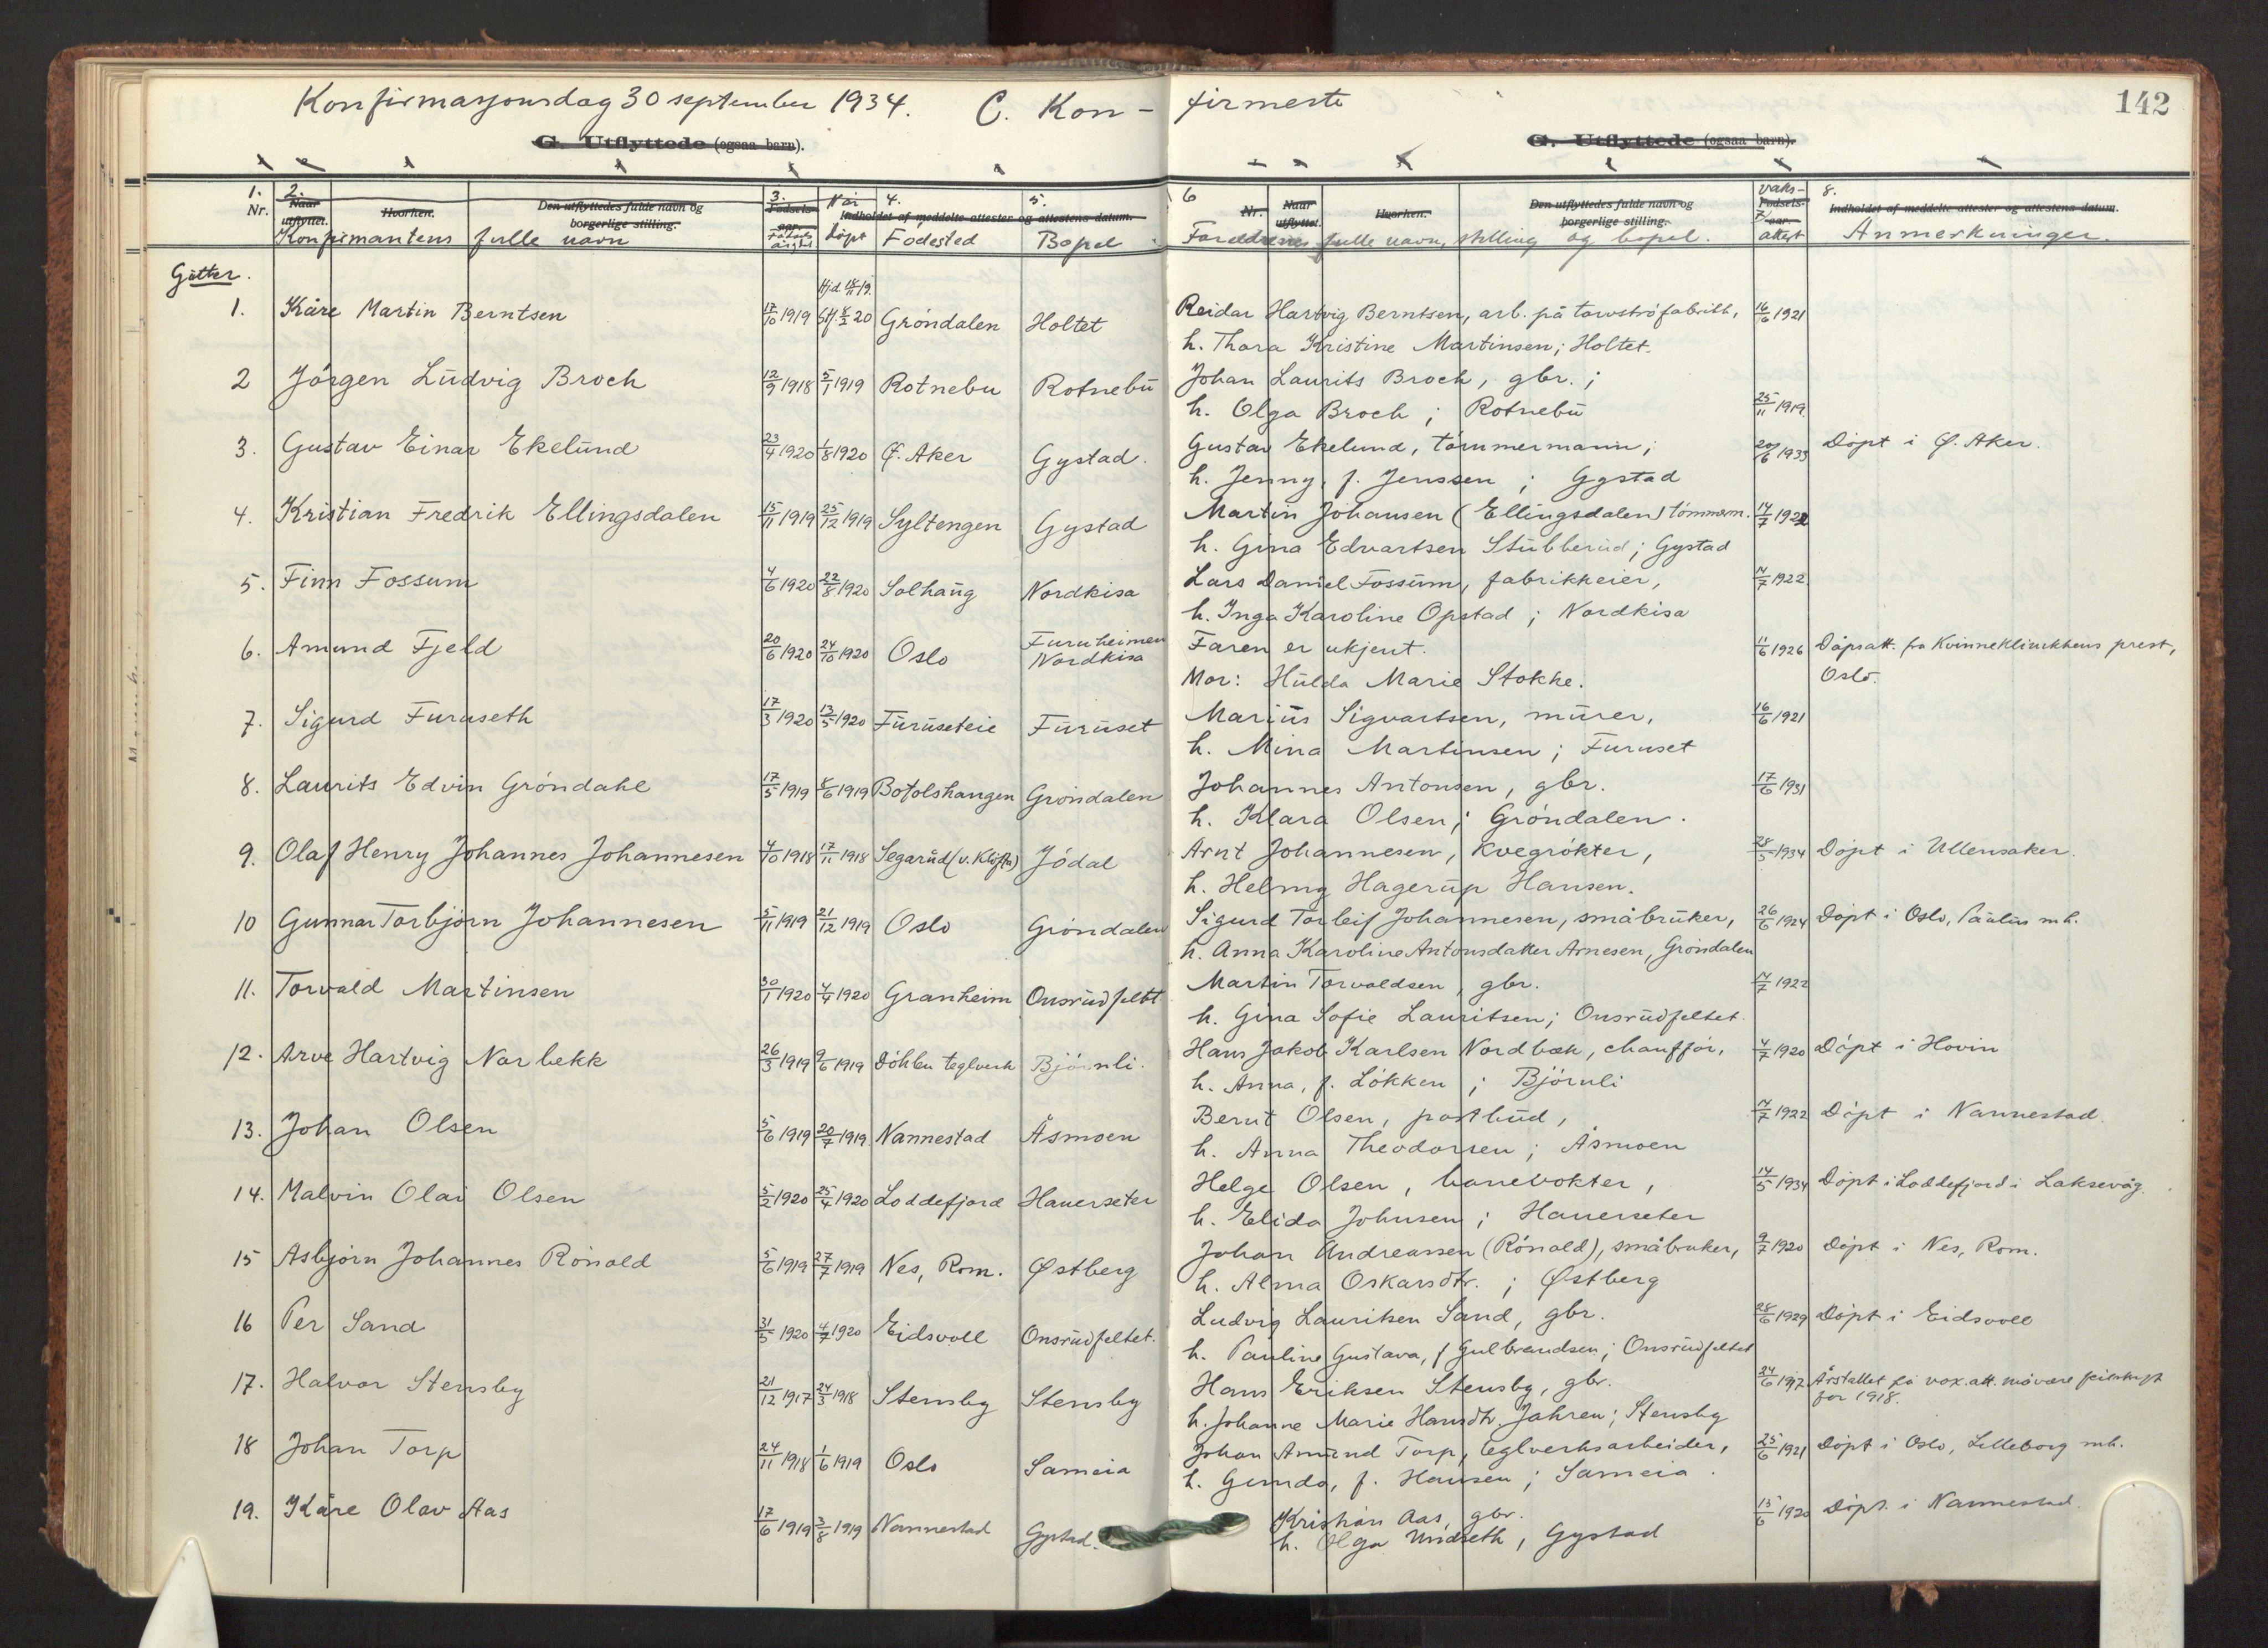 Konfirmasjonsdag 30 september 1934. C. Kon- firmerte 142
G. Utflyttede (ogsaa barn). G. Utflyttede (ogsaa barn).
1. 2. 3. Når 4. 5. 6 Vaks- 8.
Nr. Naar utflyttet. Hvorhen. Den utflyttedes fulde navn og borgerlige stilling. Fødsels- aar. Indholdet af meddelte attester og attestens datum. Nr. Naar utflyttet. Hvorhen. Den utflyttedes fulde navn og borgerlige stilling. Fødsels- aar. Indholdet af meddelte attester og attestens datum.
Konfirmantens fulle navn døpt Fødested Bopel Foreldrenes fulle navn, stilling og bopel. attest Anmerkninger.
Gutter.
Hjd 18/11 19.
1. Kåre Martin Berntsen 17/10 1919 Stf. 8/2 20 Gröndalen Holtet Reidar Hartvig Berntsen, arb. på torvströfabrikk, 16/6 1921
h. Thora Kristine Martinsen; Holtet.
2 Jörgen Ludvig Broch 12/9 1918 5/1 1919 Rotnebu Rotnebu Johan Laurits Broch, gbr.;
h. Olga Broch; Rotnebu 25/11 1919.
3. Gustav Einar Ekelund 23/4 1920 1/8 1920 Ø. Aker Gystad. Gustav Ekelund, tömmermann; 20/6 1933 Döpt i Ø. Aker.
h. Jenny, f. Jenssen; Gystad
4. Kristian Fredrik Ellingsdalen 15/11 1919 25/12 1919 Syltengen Gystad Martin Johansen (Ellingsdalen) tömmerm. 14/7 1922
h. Gina Edvartsen Stubberud; Gystad
5. Finn Fossum 4/6 1920 22/8 1920 Solhaug Nordkisa Lars Daniel Fossum, fabrikkeier, 14/7 1922
h. Inga Karoline Opstad; Nordkisa
6. Amund Fjeld 20/6 1920 24/10 1920 Oslo Furuheimen Nordkisa Faren er ukjent. 11/6 1926 Döpsatt. fra Kvinneklinikkens prest,
Mor: Hulda Marie Stokke. Oslo.
7. Sigurd Furuseth 17/3 1920 13/5 1920 Furuseteie Furuset Marius Sigvartsen, murer, 16/6 1921
h. Mina Martinsen; Furuset
8. Laurits Edvin Gröndahl 17/5 1919 8/6 1919 Botolshaugen Gröndalen Johannes Antonsen, gbr. 17/6 1931
h. Klara Olsen; Gröndalen.
9. Olaf Henry Johannes Johannesen 4/10 1918 17/11 1918 Segarud (v. Klöfta) Jödal Arnt Johannesen, kvegrökter, 28/5 1934 Döpt i Ullensaker.
h. Helmy Hagerup Hansen.
10 Gunnar Torbjörn Johannesen 5/11 1919 21/12 1919 Oslo Gröndalen Sigurd Torleif Johannesen, småbruker, 26/6 1924 Döpt i Oslo, Paulus mh.
h. Anna Karoline Antonsdatter Arnesen, Gröndalen
11. Torvald Martinsen 30/1 1920 4/4 1920 Granheim Onsrudfeltt Martin Torvaldsen, gbr. 14/7 1922
h. Gina Sofie Lauritsen; Onsrudfeltet.
12. Arve Hartvig Narbekk 26/3 1919 9/6 1919 Döhlen teglverk Björnli. Hans Jakob Karlsen Nordbæk, chauffør, 4/7 1920 Döpt i Hovin
h. Anna, f. Lökken; Björnli
13. Johan Olsen 5/6 1919 20/7 1919 Nannestad Åsmoen Bernt Olsen, postbud, 14/7 1922 Döpt i Nannestad.
h. Anna Theodorsen; Åsmoen
14. Malvin Olai Olsen 5/2 1920 25/4 1920 Loddefjord Hauerseter Helge Olsen, banevokter, 14/5 1934 Döpt i Loddefjord i Laksevåg.
h. Elida Johnsen; Hauerseter
15 Asbjörn Johannes Rönold 5/6 1919 27/7 1919 Nes, Rom. Østberg Johan Andreassen (Rönold), småbruker, 9/7 1920 döpt i Nes, Rom.
h. Alma Oskarsdtr.; Østberg
16 Per Sand 31/5 1920 4/7 1920 Eidsvoll Onsrudfeltet. Ludvig Lauritsen Sand, gbr. 28/6 1929 Döpt i Eidsvoll
h. Pauline Gustava, f Gulbrandsen; Onsrudfeltet
17. Halvor Stensby 21/12 1917 24/3 1918 Stensby Stensby Hans Eriksen Stensby, gbr. 24/6 1917 Årstallet på vax. att. må være feilskrift
h. Johanne Marie Hansdtr. Jahren; Stensby for 1918.
18 Johan Torp 24/11 1918 1/6 1919 Oslo Sameia Johan Amund Torp, teglverksarbeider, 25/6 1921 Döpt i Oslo, Lilleborg mh.
h. Gunda, f. Hansen; Sameia.
19. Kåre Olav Aas 17/6 1919 3/8 1919 Nannestad Gystad. Kristian Aas, gbr. 15/6 1920 Döpt. i Nannestad.
h. Olga Undseth, Gystad